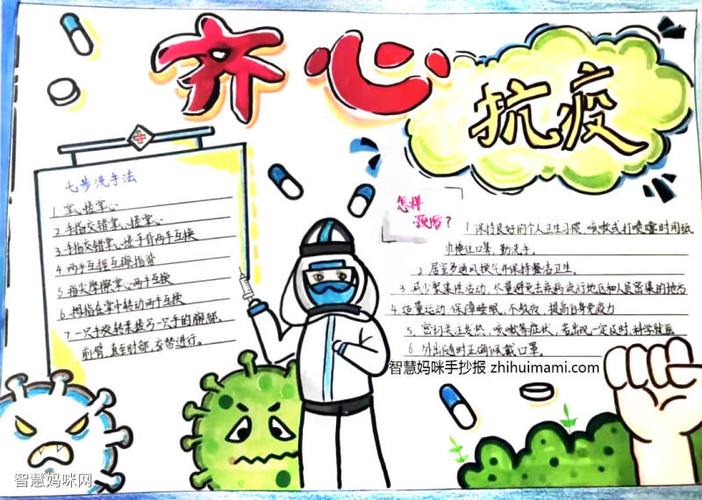 齐心
抗疫
七步洗手法
1 掌心搓掌心
2 手指交错掌心搓掌心
3 手指交错掌心搓手背两手互换
4 两手互握互擦指背
5 指尖摩擦掌心两手互换
6 拇指在掌中转动两手互换
7 一只手旋转揉搓另一只手的腕部,
前臂,直至肘部,交替进行。
怎样
预防?
1 保持良好的个人卫生习惯,咳嗽或打喷嚏时用纸
巾掩住口鼻,勤洗手。
2. 居室多通风换气并保持整洁卫生。
3. 减少聚集性活动,尽量避免去疾病流行地区和人员密集的地方
4 适量运动 保障睡眠,不熬夜,提高自身免疫力
5. 密切关注发热、咳嗽等症状,若出现一定及时,科学就医
6 外出随时正确佩戴口罩。
智慧妈咪手抄报 zhihuimami.com
智慧妈咪网